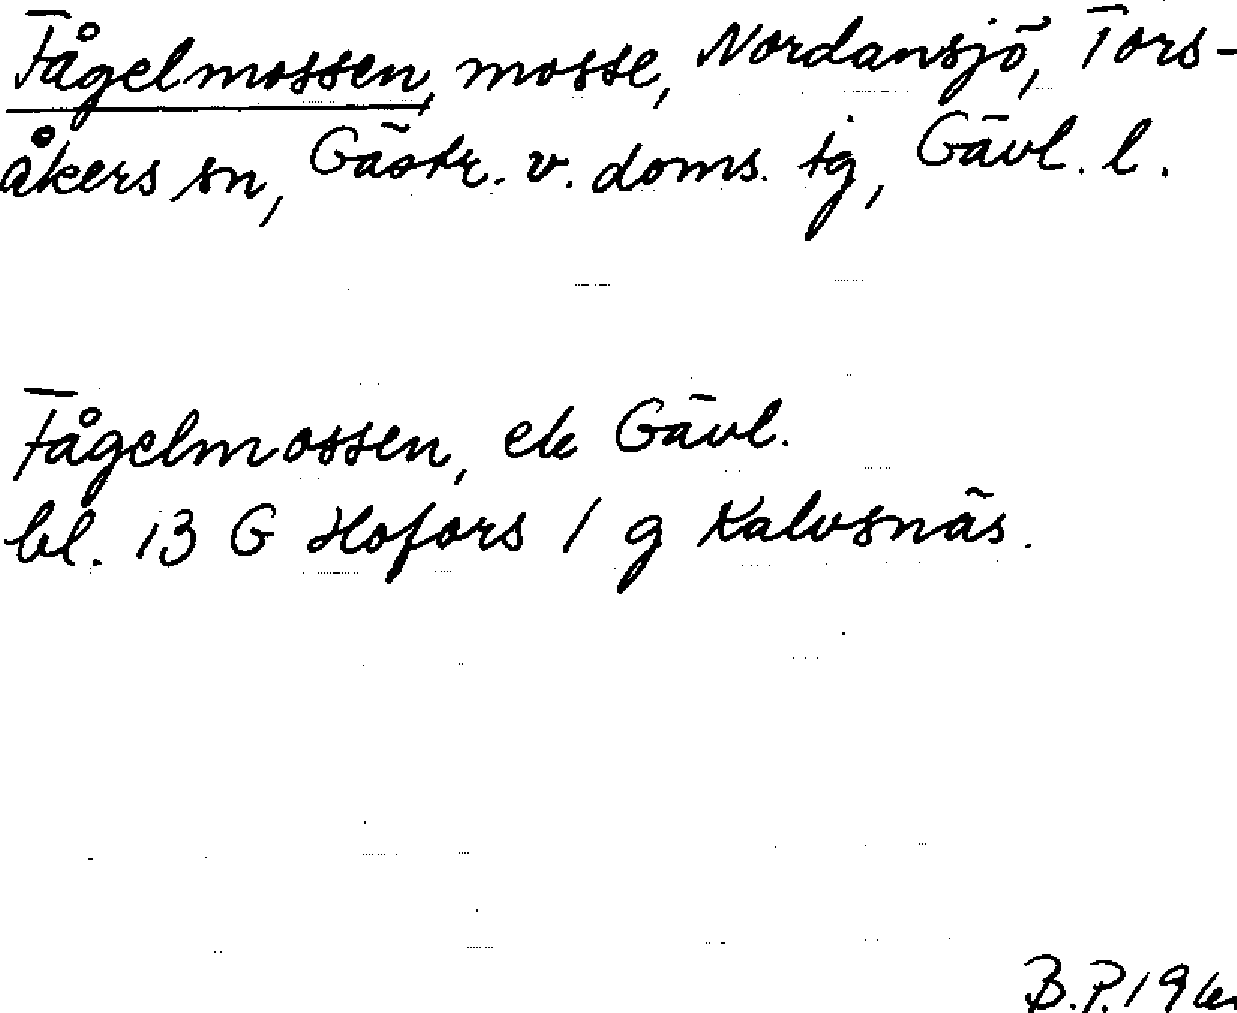 Fågelmossen, mosse, Nordansjö, Tors-
åkers sn, Gästr. v. doms. tg, Gävl. l.
Fågelmossen, ek Gävl.
bl. 13 G Hofors 1 g Kalvsnäs.
B.P. 196